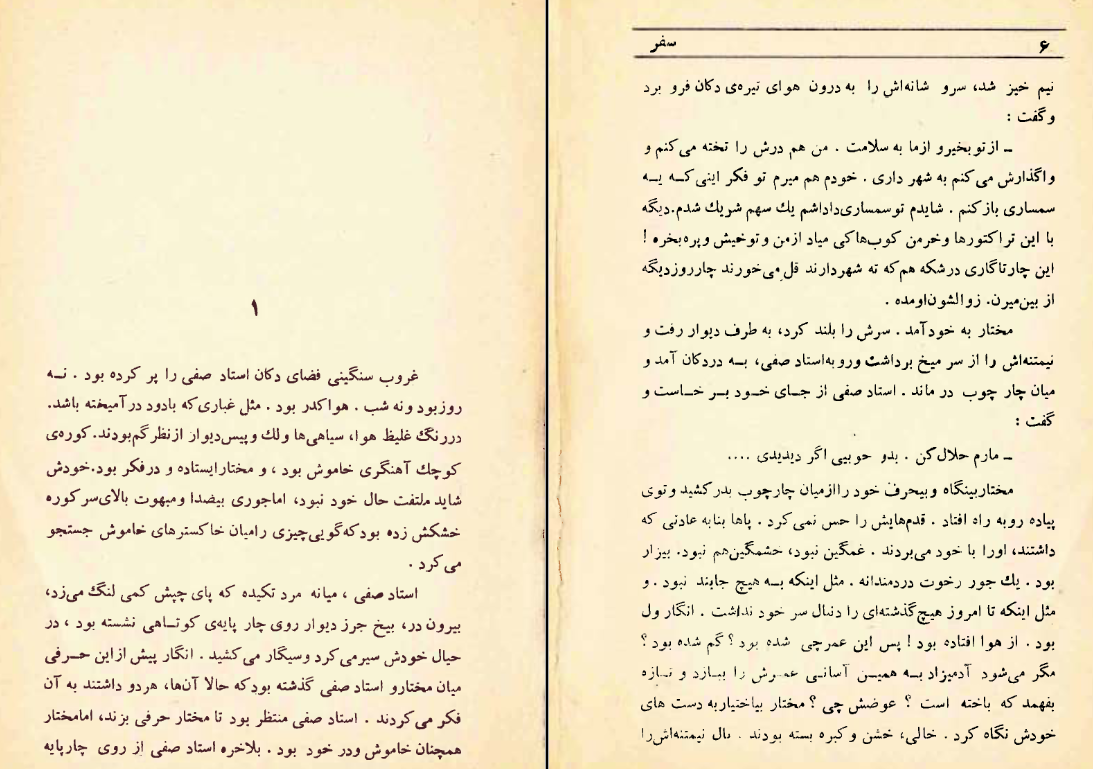 ۱
غروب سنگینی فضای دکان استاد صفی را پر کرده بود . نـه
روزبود و نه شب . هوا کدر بود . مثل غباری که بادود درآمیخته باشد.
دررنگ غلیظ هوا، سیاهی‌ها و لك و پیس دیوار از نظر گم بودند. کوره‌ی
کوچك آهنگری خاموش بود ، و مختار ایستاده و در فکر بود. خودش
شاید ملتفت حال خود نبود، اما جوری بیصدا و مبهوت بالای سر کوره
خشکش زده بود که گویی چیزی را میان خاکسترهای خاموش جستجو
می کرد .
استاد صفی ، میانه مرد تکیده که پای چپش کمی لنگ می‌زد،
بیرون در، بیخ جرز دیوار روی چار پایه‌ی کوتـاهی نشسته بود ، در
خیال خودش سیر می کرد و سیگار می کشید . انگار پیش از این حـرفی
میان مختار و استاد صفی گذشته بود که حالا آن‌ها، هر دو داشتند به آن
فکر می کردند . استاد صفی منتظر بود تا مختار حرفی بزند، اما مختار
همچنان خاموش و در خود بود . بلاخره استاد صفی از روی چارپایه
۶ سفر
نیم خیز شد، سر و شانه‌اش را به درون هوای تیره‌ی دکان فرو برد
و گفت :
ـ از تو بخیر و از ما به سلامت . من هم درش را تخته می کنم و
واگذارش می کنم به شهر داری . خودم هم میرم تو فکر اینی کـه یـه
سمساری باز کنم . شایدم تو سمساری داداشم یك سهم شریك شدم. دیگه
با این تراکتورها و خرمن کوب‌ها کی میاد از من و تو خیش و پره بخره !
این چارتا گاری درشکه هم که ته شهر دارند قل می خورند چار روز دیگه
از بین میرن. زوالشون اومده .
مختار به خود آمد . سرش را بلند کرد، به طرف دیوار رفت و
نیمتنه‌اش را از سر میخ برداشت و رو به استاد صفی، بـه در دکان آمد و
میان چار چوب در ماند . استاد صفی از جـای خـود بـر خـاست و
گفت :
ـ مارم حلال کن . بدو خوبیی اگر دیدیدی ....
مختار بینگاه و بیحرف خود را از میان چارچوب بدر کشید و توی
پیاده رو به راه افتاد . قدم‌هایش را حس نمی کرد . پاها بنا به عادتی که
داشتند، او را با خود می بردند . غمگین نبود، خشمگین هم نبود. بیزار
بود . یك جور رخوت دردمندانه . مثل اینکه بـه هیچ جابند نبود . و
مثل اینکه تا امروز هیچ گذشته‌ای را دنبال سر خود نداشت . انگار ول
بود . از هوا افتاده بود ! پس این عمر چی شده بود ؟ گم شده بود ؟
مگر می شود آدمیزاد بـه همیـن آسانـی عمـرش را ببـازد و تـازه
بفهمد که باخته است ؟ عوضش چی ؟ مختار بیاختیار به دست های
خودش نگاه کرد . خالی، خشن و کبره بسته بودند . بال نیمتنه‌اش را